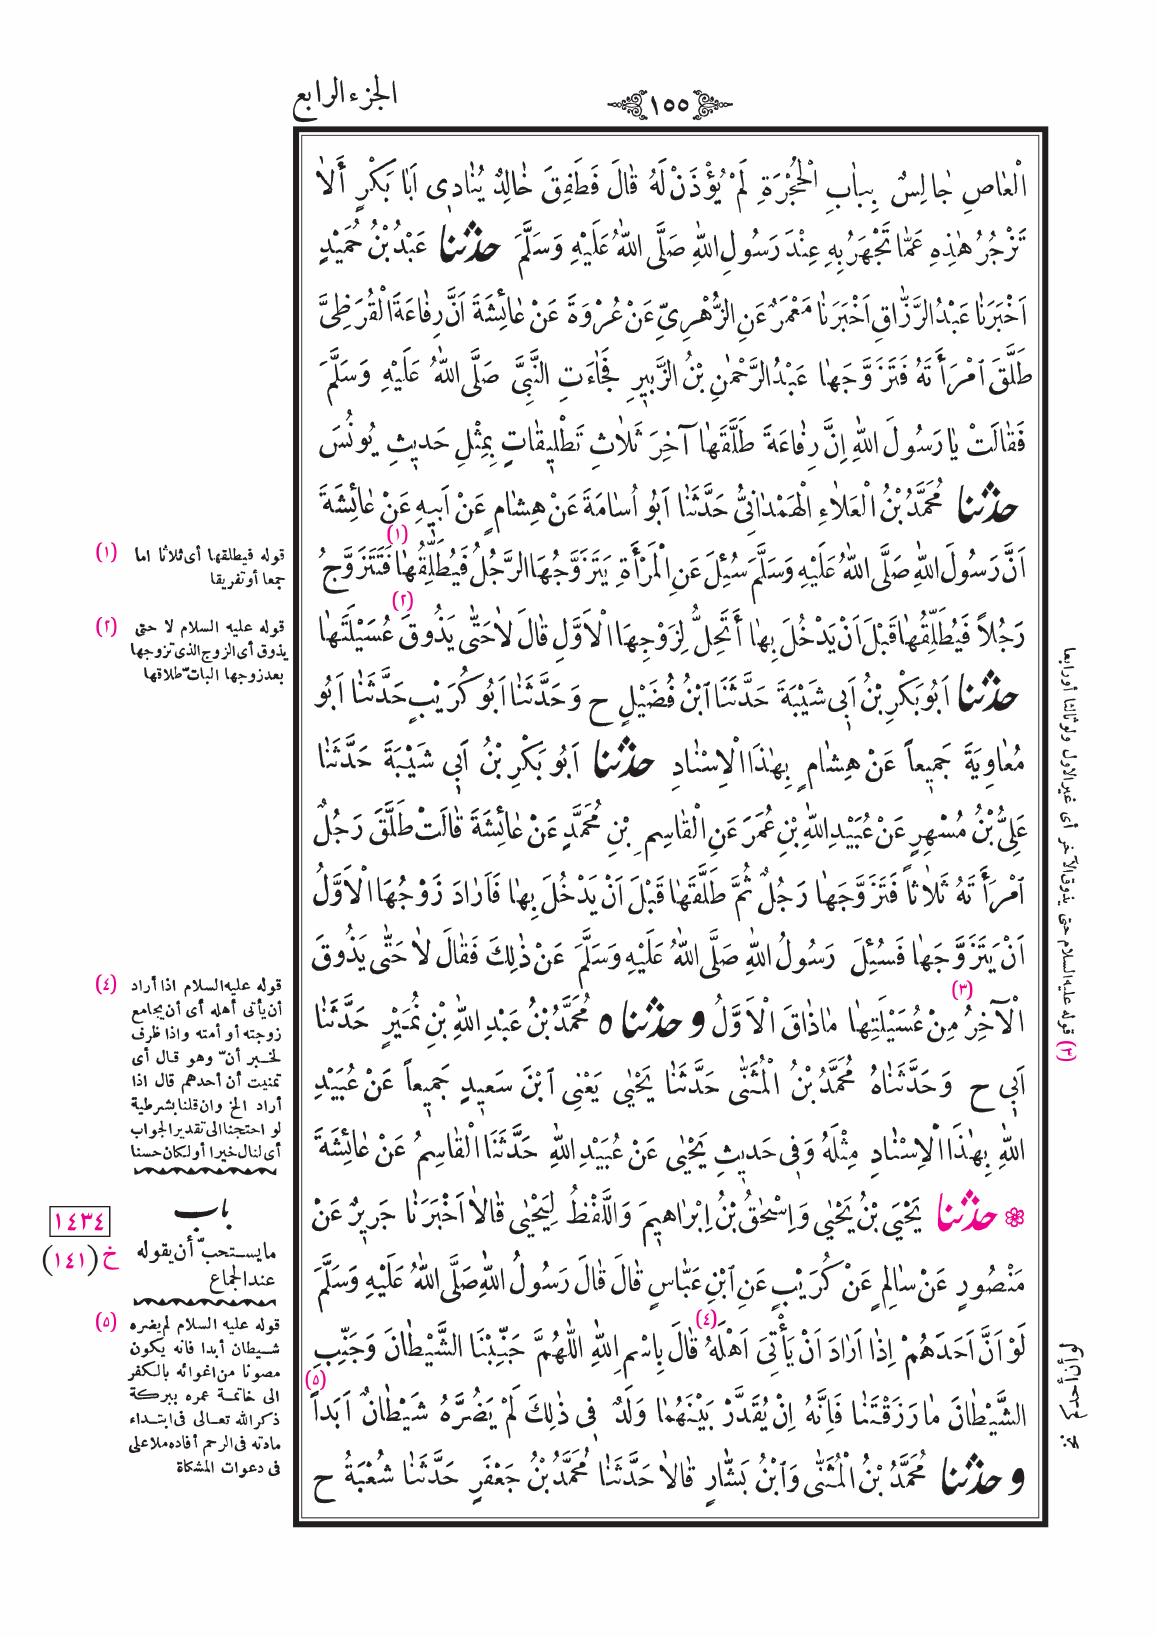 ١٥٥
الجزء الرابع
الْعَاصِ جَالِسٌ بِبَابِ الْحُجْرَةِ لَمْ يُؤْذَنْ لَهُ قَالَ فَطَفِقَ خَالِدٌ يُنَادِى اَبَا بَكْرٍ أَلاَ
تَزْجُرُ هٰذِهِ عَمَّا تَجْهَرُ بِهِ عِنْدَ رَسُولِ اللّٰهِ صَلَّى اللّٰهُ عَلَيْهِ وَسَلَّمَ حدثنا عَبْدُ بْنُ حُمَيْدٍ
اَخْبَرَنَا عَبْدُ الرَّزَّاقِ اَخْبَرَنَا مَعْمَرٌ عَنِ الزُّهْرِىِّ عَنْ عُرْوَةَ عَنْ عَائِشَةَ اَنَّ رِفَاعَةَ الْقُرَظِىَّ
طَلَّقَ امْرَأَتَهُ فَتَزَوَّجَهَا عَبْدُ الرَّحْمٰنِ بْنُ الزَّبِيرِ فَجَاءَتِ النَّبِىَّ صَلَّى اللّٰهُ عَلَيْهِ وَسَلَّمَ
فَقَالَتْ يَا رَسُولَ اللّٰهِ اِنَّ رِفَاعَةَ طَلَّقَهَا آخِرَ ثَلَاثِ تَطْلِيقَاتٍ بِمِثْلِ حَدِيثِ يُونُسَ
حدثنا مُحَمَّدُ بْنُ الْعَلَاءِ الْهَمْدَانِىُّ حَدَّثَنَا اَبُو اُسَامَةَ عَنْ هِشَامٍ عَنْ اَبِيهِ عَنْ عَائِشَةَ
اَنَّ رَسُولَ اللّٰهِ صَلَّى اللّٰهُ عَلَيْهِ وَسَلَّمَ سُئِلَ عَنِ الْمَرْأَةِ يَتَزَوَّجُهَا الرَّجُلُ فَيُطَلِّقُهَا (١) فَتَتَزَوَّجُ
رَجُلاً فَيُطَلِّقُهَا قَبْلَ اَنْ يَدْخُلَ بِهَا أَتَحِلُّ لِزَوْجِهَا الْاَوَّلِ قَالَ لَا حَتَّى يَذُوقَ (٢) عُسَيْلَتَهَا
حدثنا اَبُو بَكْرِ بْنُ اَبِى شَيْبَةَ حَدَّثَنَا ابْنُ فُضَيْلٍ ح وَحَدَّثَنَا اَبُو كُرَيْبٍ حَدَّثَنَا اَبُو
مُعَاوِيَةَ جَمِيعاً عَنْ هِشَامٍ بِهٰذَا الْاِسْنَادِ حدثنا اَبُو بَكْرِ بْنُ اَبِى شَيْبَةَ حَدَّثَنَا
عَلِىُّ بْنُ مُسْهِرٍ عَنْ عُبَيْدِ اللّٰهِ بْنِ عُمَرَ عَنِ الْقَاسِمِ بْنِ مُحَمَّدٍ عَنْ عَائِشَةَ قَالَتْ طَلَّقَ رَجُلٌ
امْرَأَتَهُ ثَلَاثاً فَتَزَوَّجَهَا رَجُلٌ ثُمَّ طَلَّقَهَا قَبْلَ اَنْ يَدْخُلَ بِهَا فَاَرَادَ زَوْجُهَا الْاَوَّلُ
اَنْ يَتَزَوَّجَهَا فَسُئِلَ رَسُولُ اللّٰهِ صَلَّى اللّٰهُ عَلَيْهِ وَسَلَّمَ عَنْ ذٰلِكَ فَقَالَ لَا حَتَّى يَذُوقَ
الْآخِرُ (٣) مِنْ عُسَيْلَتِهَا مَا ذَاقَ الْاَوَّلُ وحدثناه مُحَمَّدُ بْنُ عَبْدِ اللّٰهِ بْنِ نُمَيْرٍ حَدَّثَنَا
اَبِى ح وَحَدَّثَنَاهُ مُحَمَّدُ بْنُ الْمُثَنَّى حَدَّثَنَا يَحْيٰى يَعْنِى ابْنَ سَعِيدٍ جَمِيعاً عَنْ عُبَيْدِ
اللّٰهِ بِهٰذَا الْاِسْنَادِ مِثْلَهُ وَفِى حَدِيثِ يَحْيٰى عَنْ عُبَيْدِ اللّٰهِ حَدَّثَنَا الْقَاسِمُ عَنْ عَائِشَةَ
حدثنا يَحْيَى بْنُ يَحْيٰى وَاِسْحٰقُ بْنُ اِبْرَاهِيمَ وَاللَّفْظُ لِيَحْيٰى قَالَا اَخْبَرَنَا جَرِيرٌ عَنْ
مَنْصُورٍ عَنْ سَالِمٍ عَنْ كُرَيْبٍ عَنِ ابْنِ عَبَّاسٍ قَالَ قَالَ رَسُولُ اللّٰهِ صَلَّى اللّٰهُ عَلَيْهِ وَسَلَّمَ
لَوْ اَنَّ اَحَدَهُمْ اِذَا اَرَادَ اَنْ يَأْتِىَ اَهْلَهُ (٤) قَالَ بِاسْمِ اللّٰهِ اللّٰهُمَّ جَنِّبْنَا الشَّيْطَانَ وَجَنِّبِ
الشَّيْطَانَ مَا رَزَقْتَنَا فَاِنَّهُ اِنْ يُقَدَّرْ بَيْنَهُمَا وَلَدٌ فِى ذٰلِكَ لَمْ يَضُرَّهُ شَيْطَانٌ اَبَداً (٥)
وحدثنا مُحَمَّدُ بْنُ الْمُثَنَّى وَابْنُ بَشَّارٍ قَالَا حَدَّثَنَا مُحَمَّدُ بْنُ جَعْفَرٍ حَدَّثَنَا شُعْبَةُ ح
(١) قوله فيطلقها أى ثلاثا اما
جمعا أو تفريقا
(٢) قوله عليه السلام لا حتى
يذوق أى الزوج الذى تزوجها
بعد زوجها البات ّ طلاقها
(٣) قوله عليه السلام حتى يذوق الآخر أى غير الاول ولو ثالثا أو رابعا
(٤) قوله عليه السلام اذا أراد
أن يأتى أهله أى أن يجامع
زوجته أو أمته واذا ظرف
لخبر أنّ وهو قال أى
تمنيت أن أحدهم قال اذا
أراد الخ وان قلنا بشرطية
لو احتجنا الى تقدير الجواب
أى لنال خيرا أو لكان حسنا
باب
١٤٣٤
ما يستحبّ أن يقوله
خ (١٤١)
عند الجماع
(٥) قوله عليه السلام لم يضره
شيطان أبدا فانه يكون
مصونا من اغوائه بالكفر
الى خاتمة عمره ببركة
ذكر الله تعالى فى ابتداء
مادته فى الرحم أفاده ملا على
فى دعوات المشكاة
لو أن أحدكم نخ